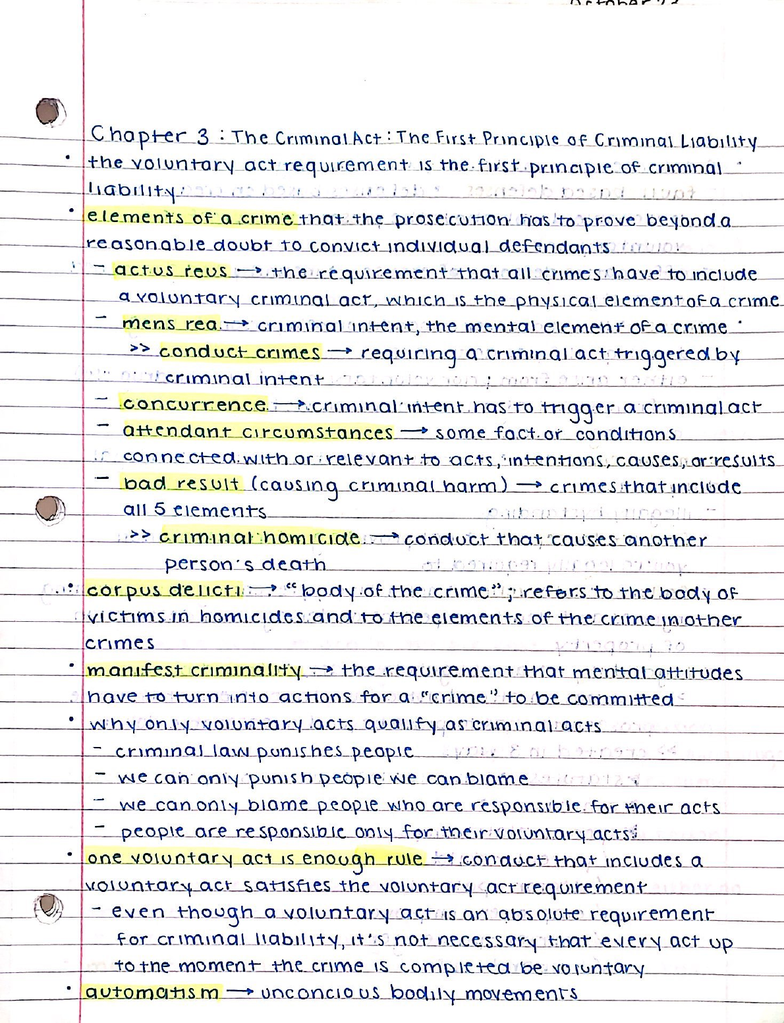 Chapter 3 : The Criminal Act : The First Principle of Criminal Liability
• the voluntary act requirement is the first principle of criminal
liability
• elements of a crime that the prosecution has to prove beyond a
reasonable doubt to convict individual defendants
- actus reus → the requirement that all crimes have to include
a voluntary criminal act, which is the physical element of a crime
- mens rea → criminal intent, the mental element of a crime
>> conduct crimes → requiring a criminal act triggered by
criminal intent
- concurrence → criminal intent has to trigger a criminal act
- attendant circumstances → some fact or conditions
connected with or relevant to acts, intentions, causes, or results
- bad result (causing criminal harm) → crimes that include
all 5 elements
>> criminal homicide → conduct that causes another
person's death
• corpus delicti → "body of the crime"; refers to the body of
victims in homicides and to the elements of the crime in other
crimes
• manifest criminality → the requirement that mental attitudes
have to turn into actions for a "crime" to be committed
• why only voluntary acts qualify as criminal acts
- criminal law punishes people
- we can only punish people we can blame
- we can only blame people who are responsible for their acts
- people are responsible only for their voluntary acts
• one voluntary act is enough rule → conduct that includes a
voluntary act satisfies the voluntary act requirement
- even though a voluntary act is an absolute requirement
for criminal liability, it's not necessary that every act up
to the moment the crime is completed be voluntary
• automatism → unconcious bodily movements